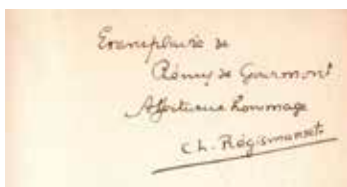 Exemplaire de
Rémy de Gourmont
Affectueux hommage
Ch. Régismanset